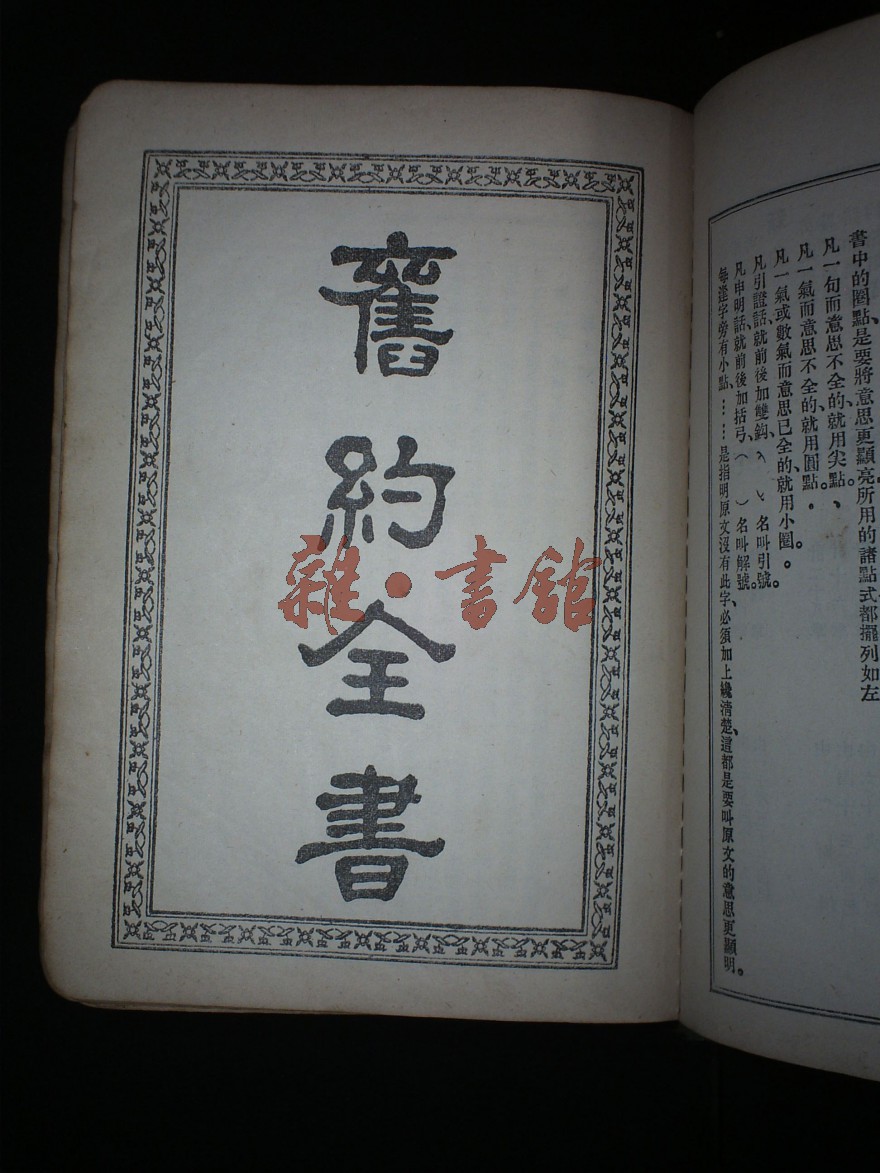 書中的圈點、是要將意思更顯亮所用的諸點式都擺列如左
凡一句而意思不全的、就用尖點。、
凡一氣而意思不全的、就用圓點。．
凡一氣或數氣而意思已全的、就用小圈。。
凡引證話、就前後加雙鈎、 名叫引號。
凡申明話、就前後加括弓、（ ）名叫解號。
每逢字旁有小點、……是指明原文沒有此字、必須加上纔清楚、這都是要叫原文的意思更顯明。
舊約全書
雜·書館